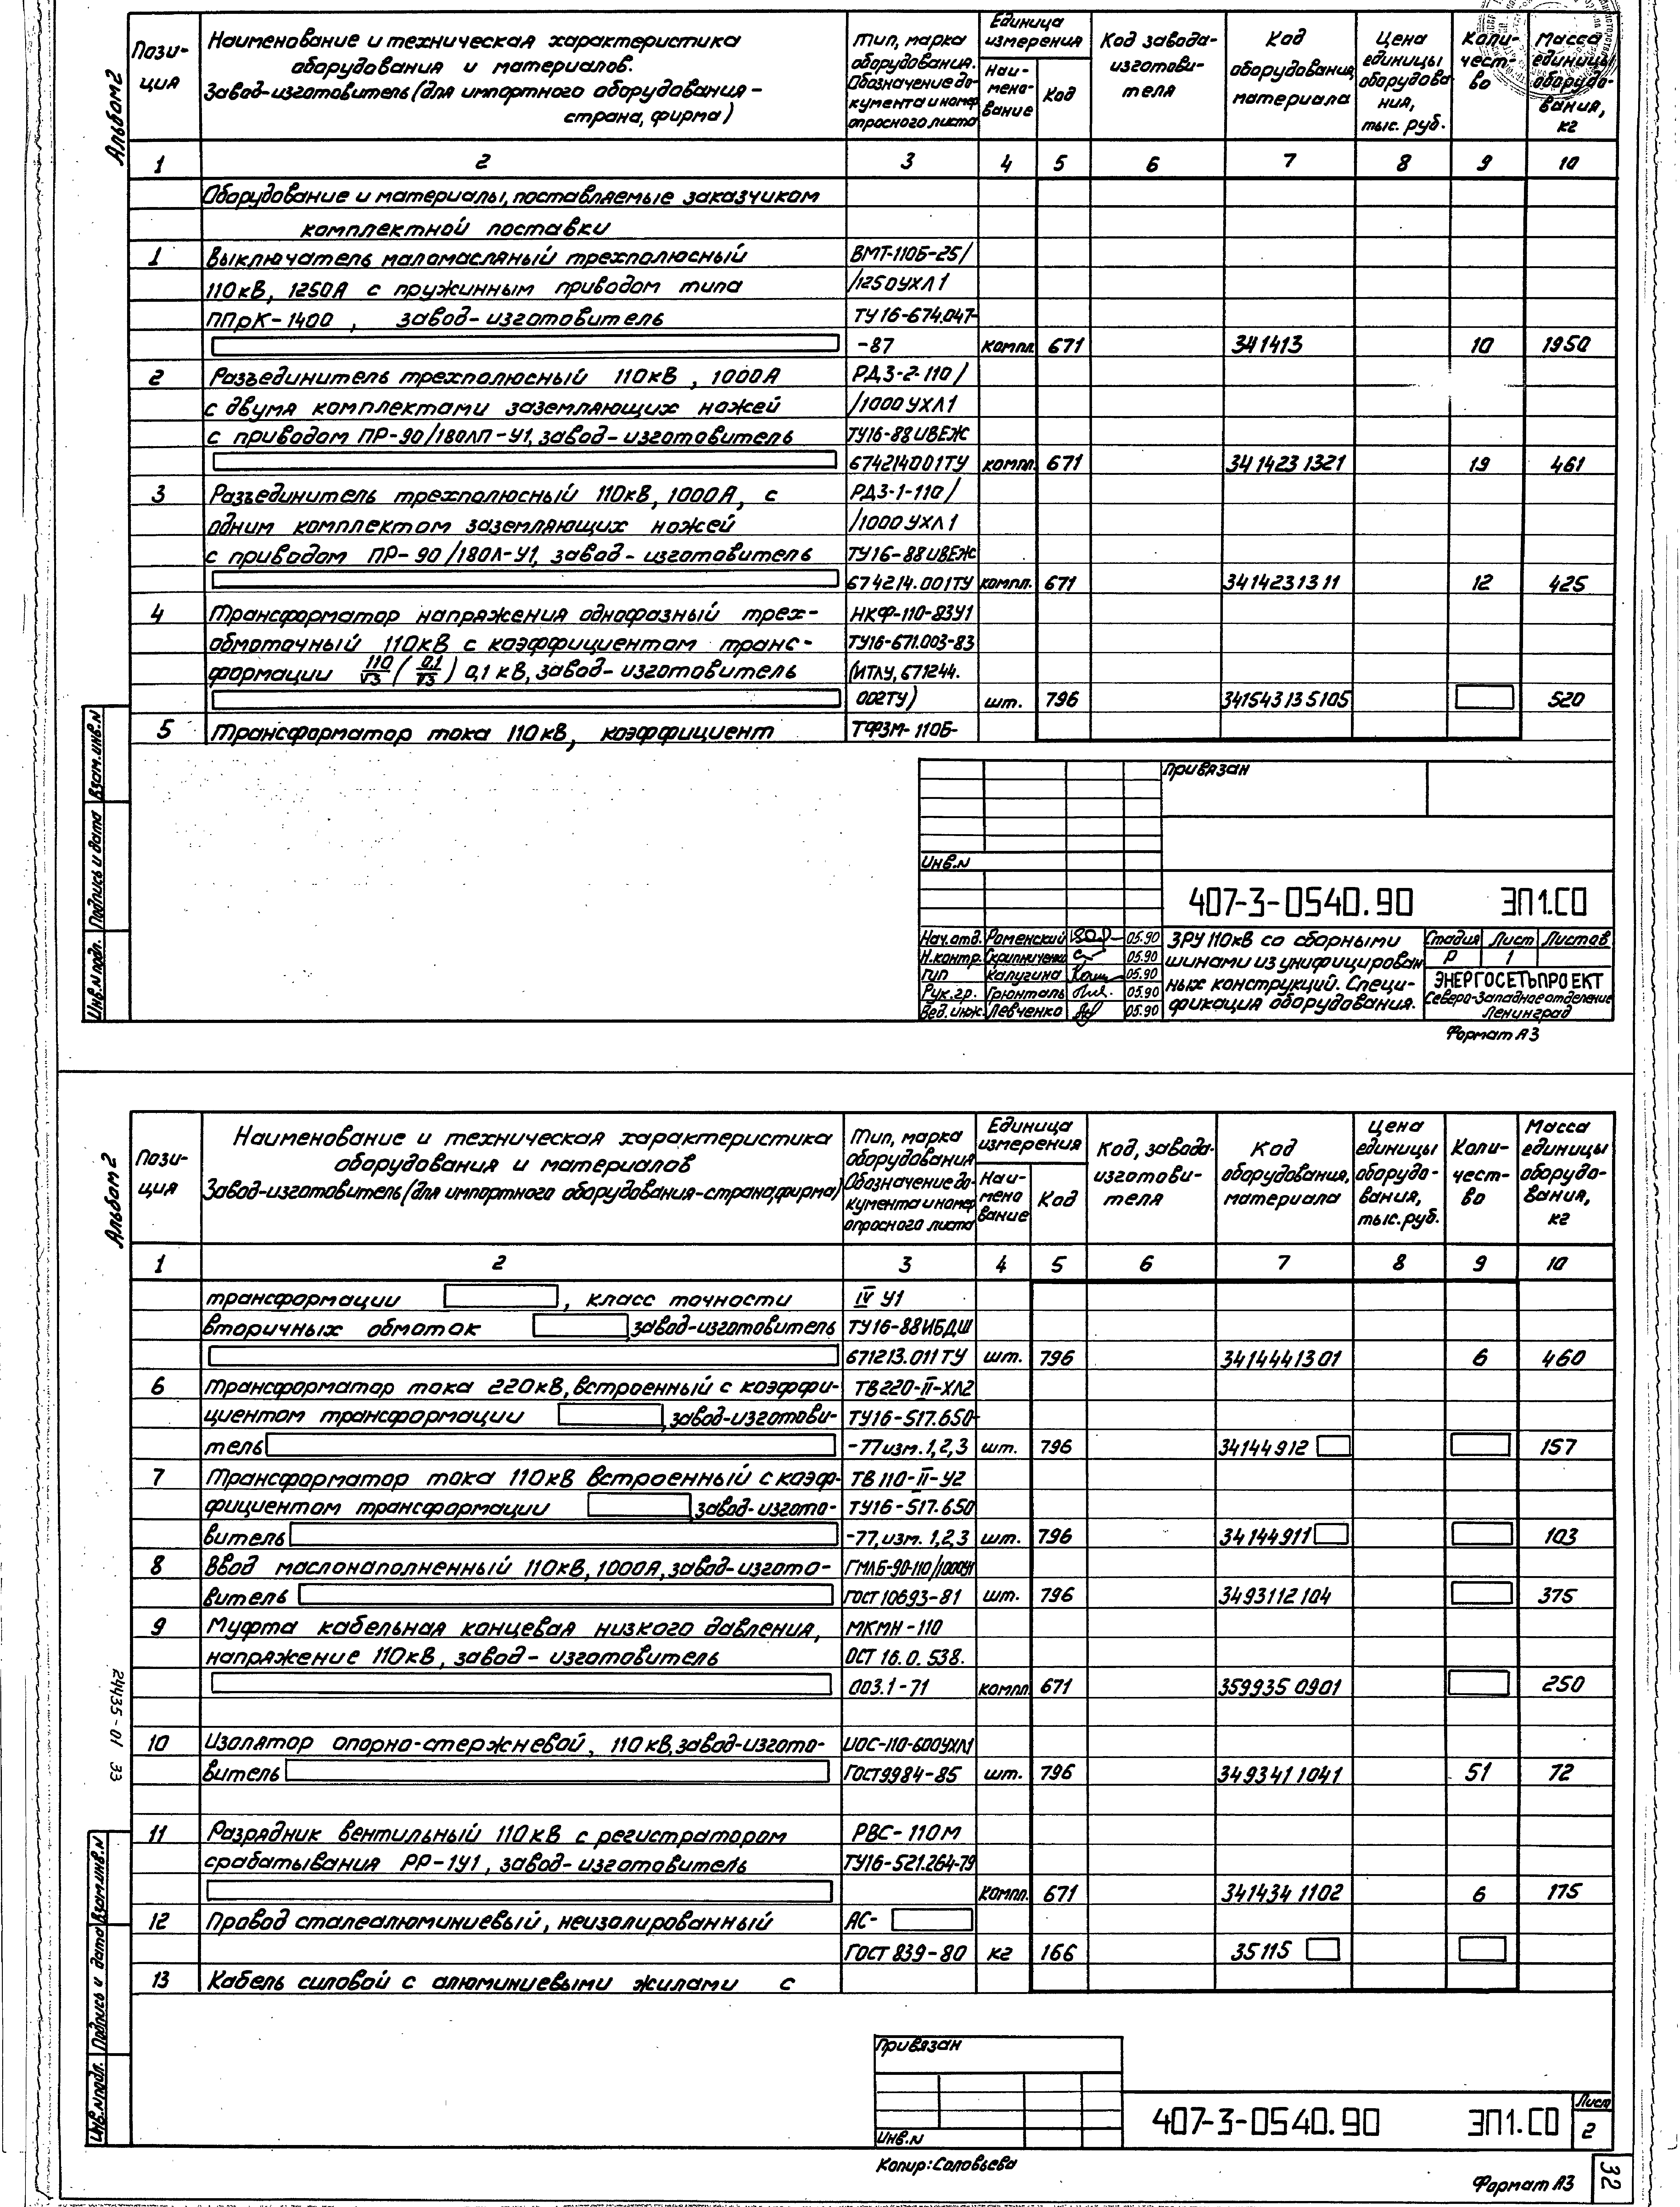 Альбом 2
Пози-
ция
Наименование и техническая характеристика
оборудования и материалов.
Завод-изготовитель (для импортного оборудования -
страна, фирма)
Тип, марка
оборудования.
Обозначение до-
кумента и номер
опросного листа
Единица
измерения
Наи-
мено-
вание
Код
Код завода-
изготови-
теля
Код
оборудования,
материала
Цена
единицы
оборудова
ния,
тыс. руб.
Коли-
чест-
во
Масса
единицы
оборудо-
вания,
кг
1 2 3 4 5 6 7 8 9 10
Оборудование и материалы, поставляемые заказчиком
комплектной поставки
1 Выключатель маломасляный трехполюсный ВМТ-110Б-25/
110кВ, 1250А с пружинным приводом типа /1250УХЛ1
ППрК-1400, завод-изготовитель ТУ16-674.047-
-87 компл. 671 341413 10 1950
2 Разъединитель трехполюсный 110кВ, 1000А РДЗ-2-110/
с двумя комплектами заземляющих ножей /1000УХЛ1
с приводом ПР-90/180ЛП-У1, завод-изготовитель ТУ16-88 ИВЕЖ
674214001ТУ компл. 671 3414231321 19 461
3 Разъединитель трехполюсный 110кВ, 1000А, с РДЗ-1-110/
одним комплектом заземляющих ножей /1000УХЛ1
с приводом ПР-90/180Л-У1, завод-изготовитель ТУ16-88ИВЕЖ
674214.001ТУ компл. 671 3414231311 12 425
4 Трансформатор напряжения однофазный трех- НКФ-110-83У1
обмоточный 110кВ с коэффициентом транс- ТУ16-671.003-83
формации 110/√3 (0,1/√3) 0,1 кВ, завод-изготовитель (ИТЛУ, 671244.
002ТУ) шт. 796 341543135105 520
5 Трансформатор тока 110кВ, коэффициент ТФЗМ-110Б-
Инв.N подл. Подпись и дата Взам.инв.N
Привязан
Инв.N
407-3-0540.90 ЭП1.СО
Нач.отд. Роменский 05.90
Н.контр. Скрипниченко 05.90
ГИП Калугина 05.90
Рук.гр. Грюнталь 05.90
Вед.инж. Левченко 05.90
ЗРУ 110кВ со сборными
шинами из унифицирован
ных конструкций. Специ-
фикация оборудования.
Стадия Лист Листов
Р 1
ЭНЕРГОСЕТЬПРОЕКТ
Северо-Западное отделение
Ленинград
Формат А3
Альбом 2
Пози-
ция
Наименование и техническая характеристика
оборудования и материалов
Завод-изготовитель (для импортного оборудования-страна, фирма)
Тип, марка
оборудования
Обозначение до-
кумента и номер
опросного листа
Единица
измерения
Наи-
мено
вание
Код
Код, завода-
изготови-
теля
Код
оборудования,
материала
Цена
единицы
оборудо-
вания,
тыс.руб.
Коли-
чест-
во
Масса
единицы
оборудо-
вания,
кг
1 2 3 4 5 6 7 8 9 10
трансформации , класс точности IV У1
вторичных обмоток , завод-изготовитель ТУ16-88ИБДШ
671213.011ТУ шт. 796 3414441301 6 460
6 Трансформатор тока 220кВ, встроенный с коэффи- ТВ220-II-ХЛ2
циентом трансформации , завод-изготови- ТУ16-517.650-
тель -77изм.1,2,3 шт. 796 34144912 157
7 Трансформатор тока 110кВ встроенный с коэф- ТВ110-II-У2
фициентом трансформации завод-изгото- ТУ16-517.650
витель -77,изм. 1,2,3 шт. 796 34144911 103
8 Ввод маслонаполненный 110кВ, 1000А, завод-изгото- ГМЛБ-90-110/1000У1
витель ГОСТ10693-81 шт. 796 3493112104 375
9 Муфта кабельная концевая низкого давления, МКМН-110
напряжение 110кВ, завод-изготовитель ОСТ 16.0.538.
003.1-71 компл. 671 3599350901 250
10 Изолятор опорно-стержневой, 110кВ, завод-изгото- ИОС-110-600УХЛ1
витель ГОСТ9984-85 шт. 796 3493411041 51 72
11 Разрядник вентильный 110кВ с регистратором РВС-110М
срабатывания РР-1У1, завод-изготовитель ТУ16-521.264-79
компл. 671 3414341102 6 175
12 Провод сталеалюминиевый, неизолированный АС-
ГОСТ 839-80 кг 166 35115
13 Кабель силовой с алюминиевыми жилами с
24435-01 33
Инв.N подл. Подпись и дата Взам.инв.N
Привязан
Инв.N
407-3-0540.90 ЭП1.СО
Лист
2
Копир: Соловьева
Формат А3
32